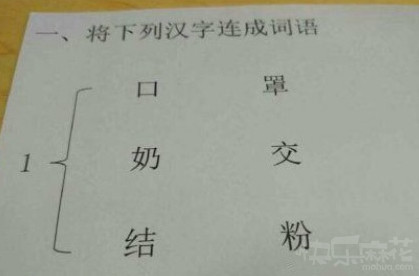 一、将下列汉字连成词语
口 罩
1 奶 交
结 粉
快乐麻花